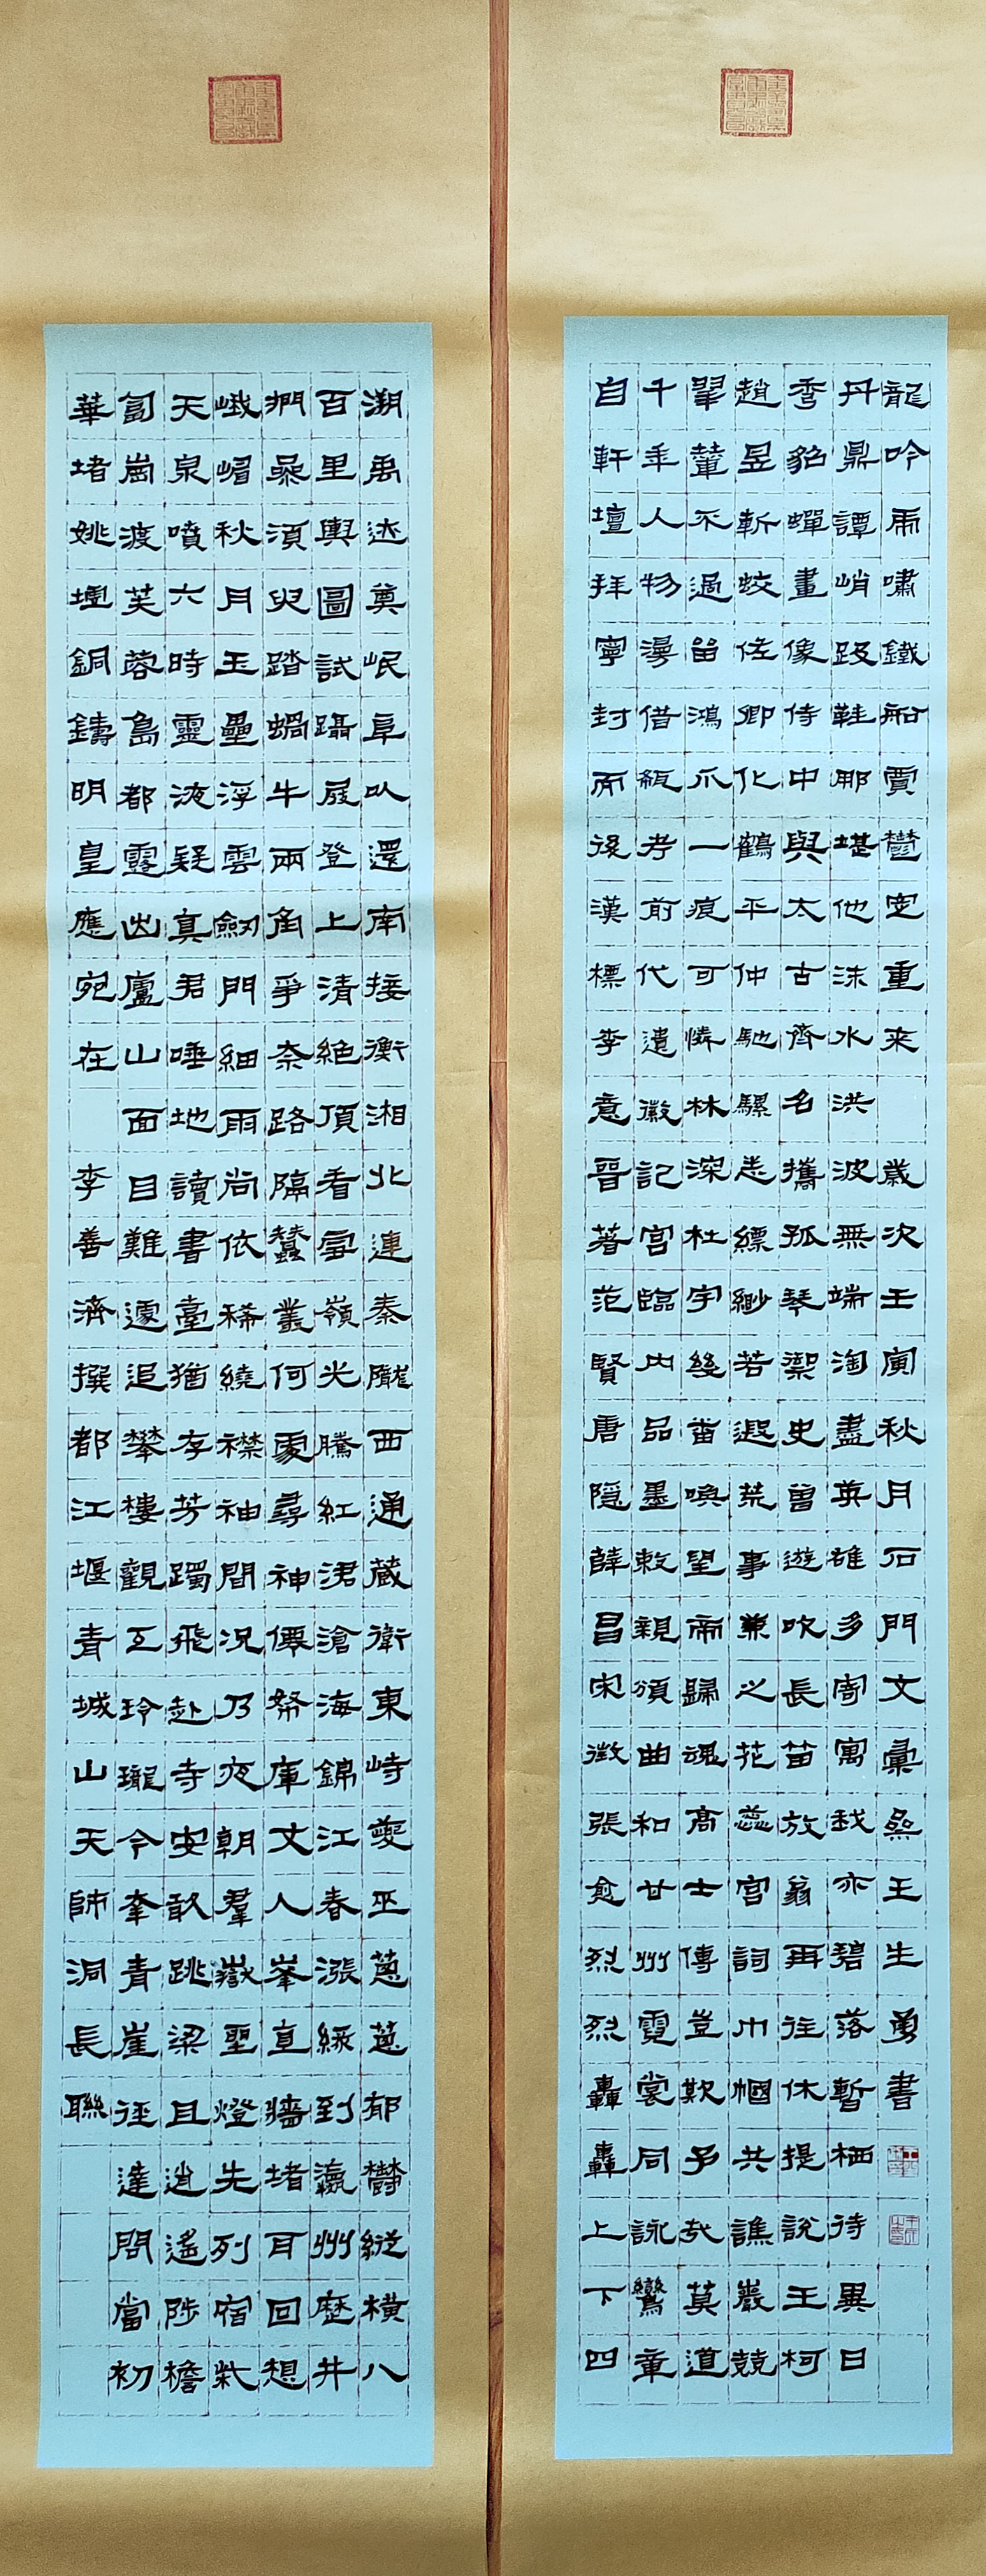 溯禹迹奠岷阜以還南接衡湘北連秦隴西通藏衛東峙夔巫葱葱郁鬱縱橫八
百里輿圖試躡屐登上清絕頂看雪嶺光騰紅涌滄海錦江春漲綠到瀛州歷井
捫參須臾踏蝸牛兩角爭奈路隔蠶叢何處尋神僊帑庫丈人峯直牆堵耳回想
峨嵋秋月玉壘浮雲劍門細雨尚依稀繞襟袖間況乃夜朝羣嶽聖燈先列宿柴
天泉噴六時靈液疑真君唾地讀書臺猶存芳躅飛赴寺安敢跳梁且逍遙陟檐
蔔崗渡芙蓉島都露出廬山面目難遽追攀樓觀互玲瓏今幸青崖徑達問當初
華堵姚墟銅鑄明皇應宛在 李善濟撰都江堰青城山天師洞長聯
自軒壇拜寧封而後漢標李意晉著范賢唐隱薛昌宋徵張愈烈烈轟轟上下四
千年人物漫借瓻考前代遺徽記宮臨內品墨敕親頒曲和甘州霓裳同詠鸞章
翠輦不過留鴻爪一痕可憐林深杜宇幾番喚望帝歸魂高士傳豈欺予哉莫道
趙昱斬蛟佐卿化鶴平仲馳騾悉縹緲若遐荒事兼之花蕊宮詞巾幗共譙巖競
秀貂蟬畫像侍中與太古齊名攜孤琴御史曾遊吹長笛放翁再往休提說王柯
丹鼎譚峭趿鞋那堪他沫水洪波無端淘盡英雄多寄寓我亦碧落暫栖待異日
龍吟虎嘯鐵船賈鬱定重來 歲次壬寅秋月石門文彙王生勇書